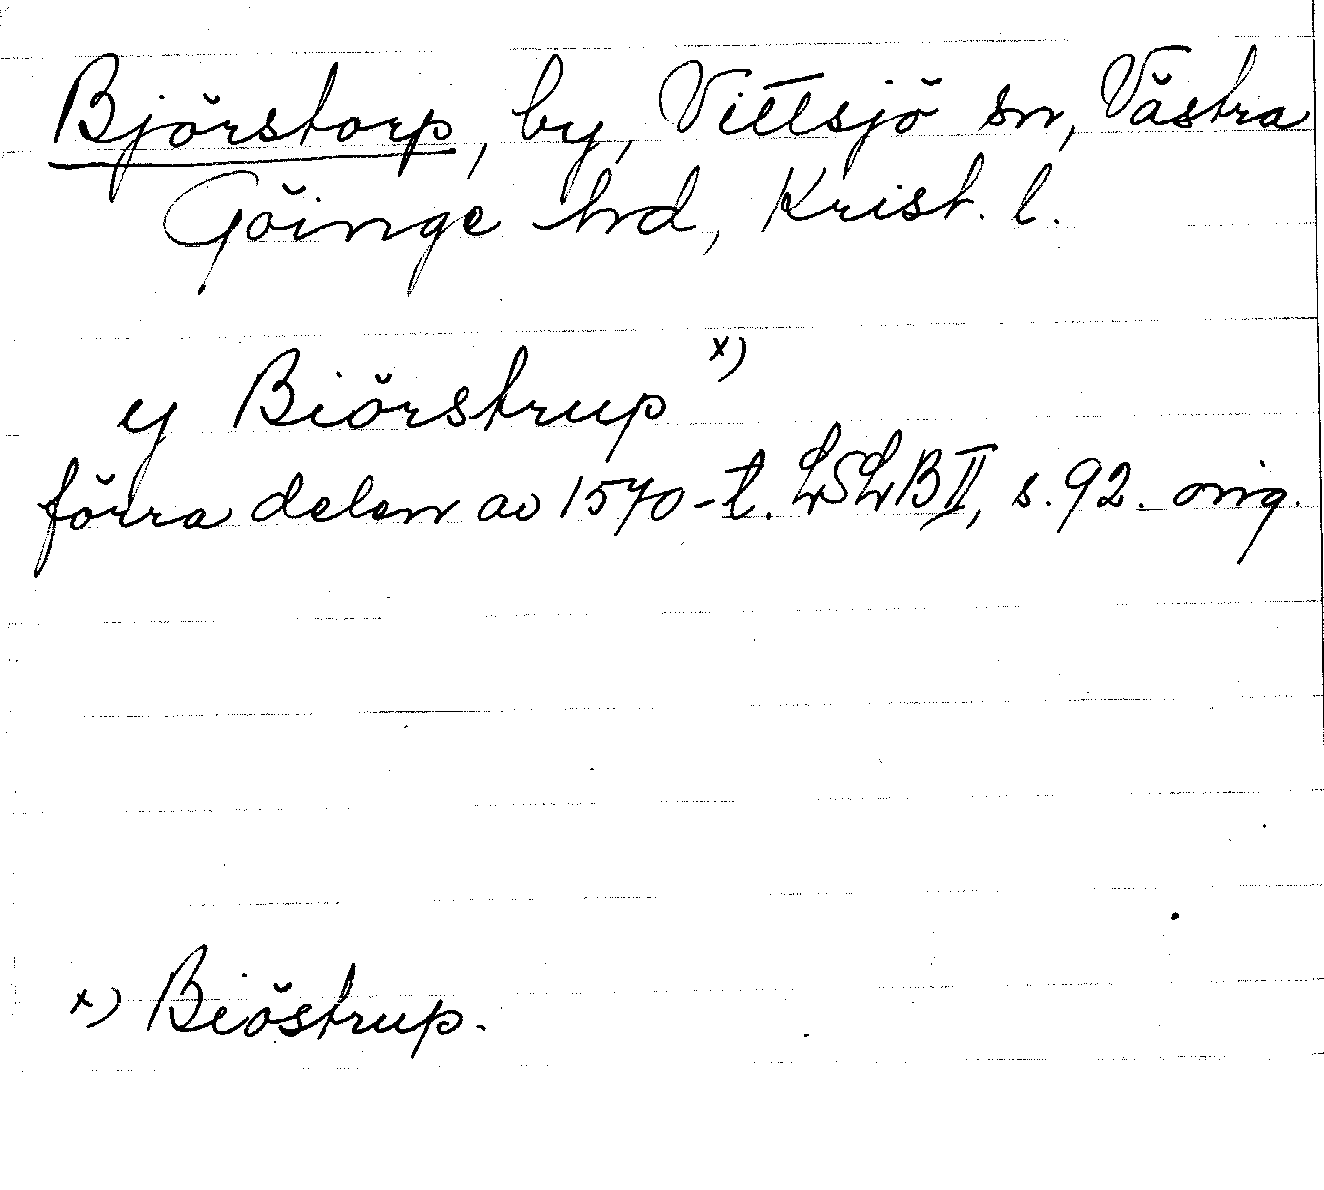 Björstorp, by, Vittsjö sn, Västra
Göinge hd, Krist. l.
y Biörstrup x)
förra delen av 1570-t. LSLB II, s. 92. orig.
x) Biöstrup.